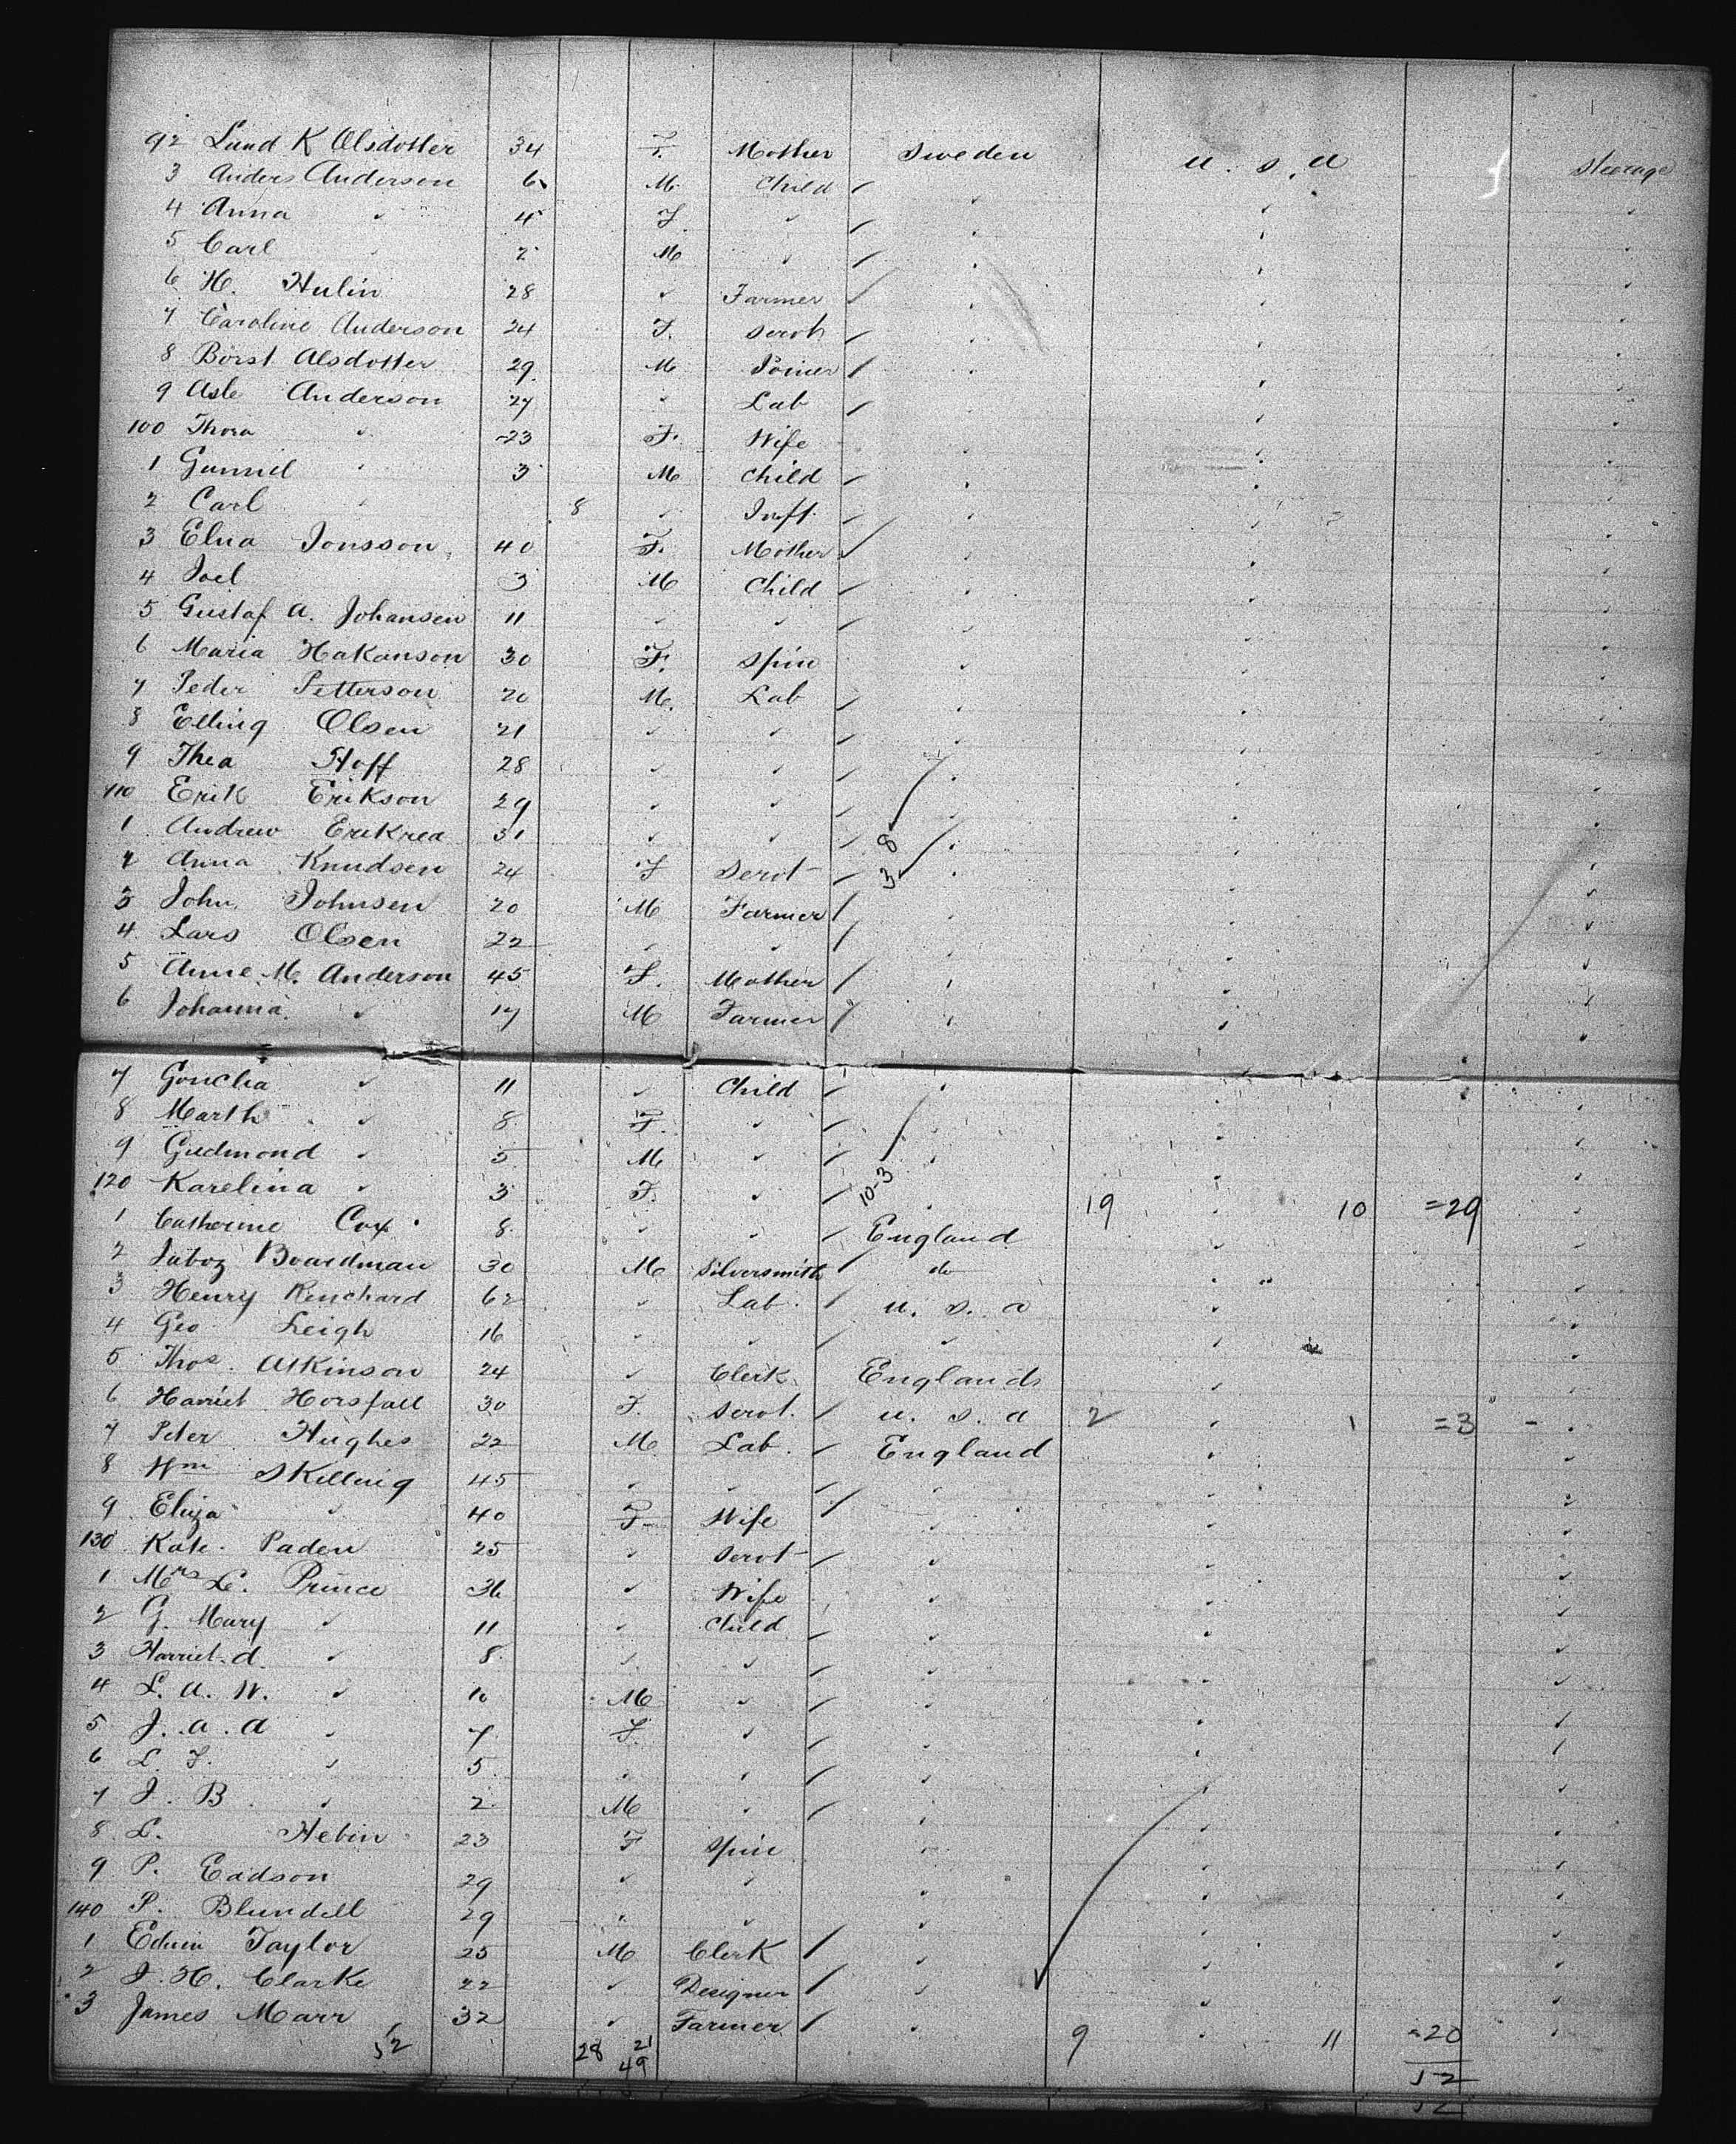 92 Lund K Olsdotter 34 F. Mother Sweden U. S. A Steerage
3 Anders Anderson 6 M. Child ✓ ✓ ✓
4 Anna ✓ 4 F. ✓ ✓ ✓ ✓
5 Carl ✓ 2 M ✓ ✓ ✓ ✓
6 H. Hulin 28 ✓ Farmer ✓ ✓ ✓
7 Caroline Anderson 24 F. Servt ✓ ✓ ✓
8 Borst Alsdotter 29 M Joiner ✓ ✓ ✓
9 Asle Anderson 27 ✓ Lab ✓ ✓ ✓
100 Thora ✓ 23 F. Wife ✓ ✓ ✓
1 Gunnil ✓ 3 M Child ✓ ✓ ✓
2 Carl ✓ 8 ✓ Inft. ✓ ✓ ✓
3 Elna Jonsson 40 F. Mother ✓ ✓ ✓
4 Joel 3 M Child ✓ ✓ ✓
5 Gustaf A. Johansen 11 ✓ ✓ ✓ ✓ ✓
6 Maria Hakanson 30 F. Spin ✓ ✓ ✓
7 Peder Petterson 20 M. Lab ✓ ✓ ✓
8 Elling Olsen 21 ✓ ✓ ✓ ✓ ✓
9 Thea Hoff 28 ✓ ✓ ✓ ✓ ✓
110 Erik Erikson 29 ✓ ✓ ✓ ✓ ✓
1 Andrew 31 ✓ ✓ 8 ✓ ✓ ✓
2 Anna Knudsen 24 F Servt 3 ✓ ✓ ✓
3 John Johnsen 20 M Farmer ✓ ✓ ✓
4 Lars Olsen 22 ✓ ✓ ✓ ✓ ✓
5 Anne M. Anderson 45 F. Mother ✓ ✓ ✓
6 Johanna ✓ 17 M Farmer ✓ ✓ ✓
7 ✓ 11 ✓ Child ✓ ✓ ✓
8 Marth ✓ 8 F. ✓ ✓ ✓ ✓
9 Gudmond ✓ 5 M ✓ ✓ ✓ ✓
120 Karelina ✓ 3 F. ✓ 10-3 ✓ 19 ✓ 10 =29 ✓
1 Catherine Cox 8 ✓ ✓ England ✓ ✓
2 Jaboz Boardman 30 M Silversmith do ✓ ✓
3 Henry 62 ✓ Lab. U. S. A ✓ ✓
4 Geo Leigh 16 ✓ ✓ ✓ ✓ ✓
5 Thos. Atkinson 24 ✓ Clerk England ✓ ✓
6 Harriet Horsfall 30 F. Servt. U. S. A 2 ✓ 1 =3 - ✓
7 Peter Hughes 22 M Lab. England ✓ ✓
8 Wm Skelling 45 ✓ ✓ ✓ ✓ ✓
9 Eliza ✓ 40 F Wife ✓ ✓ ✓
130 Kate Paden 25 ✓ Servt ✓ ✓ ✓
1 Mrs L. Prince 36 ✓ Wife ✓ ✓ ✓
2 G. Mary ✓ 11 ✓ Child ✓ ✓ ✓
3 Harriet. A. ✓ 8 ✓ ✓ ✓ ✓ ✓
4 L. A. W. ✓ 10 M ✓ ✓ ✓ ✓
5 J. A. A ✓ 7 F. ✓ ✓ ✓ ✓
6 L. F. ✓ 5 ✓ ✓ ✓ ✓ ✓
7 J. B ✓ 2 M ✓ ✓ ✓ ✓
8 L. Hebin 23 F Spin ✓ ✓ ✓
9 P. Eadson 29 ✓ ✓ ✓ ✓ ✓
140 P. Blundell 29 ✓ ✓ ✓ ✓ ✓
1 Edwin Taylor 25 M Clerk ✓ ✓ ✓
2 J. H. Clarke 22 ✓ Designer ✓ ✓ ✓
3 James Marr 32 ✓ Farmer ✓ 9 ✓ 11 =20 ✓
52 28 21 52
49
52